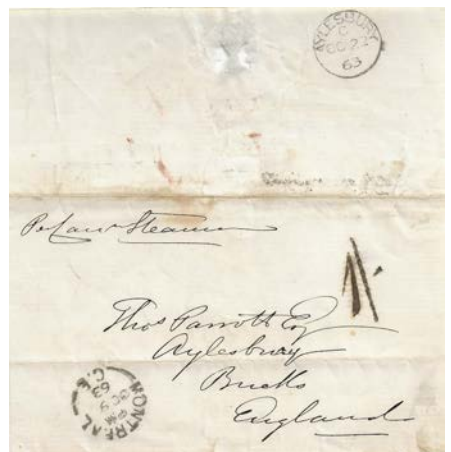 AYLESBURY
C
OC 22
63
Steamer
Thos Parrott Esq
Aylesbury
Bucks
England
MONTREAL
PM
OC 9
63
C.E